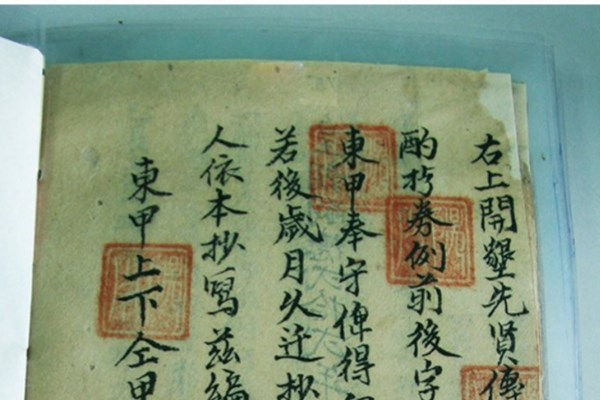 右上開墾先賢傳
酌於券例前後字
東甲奉守俾得
若後歲月久迁抄
人依本抄寫茲編
東甲上下仝甲